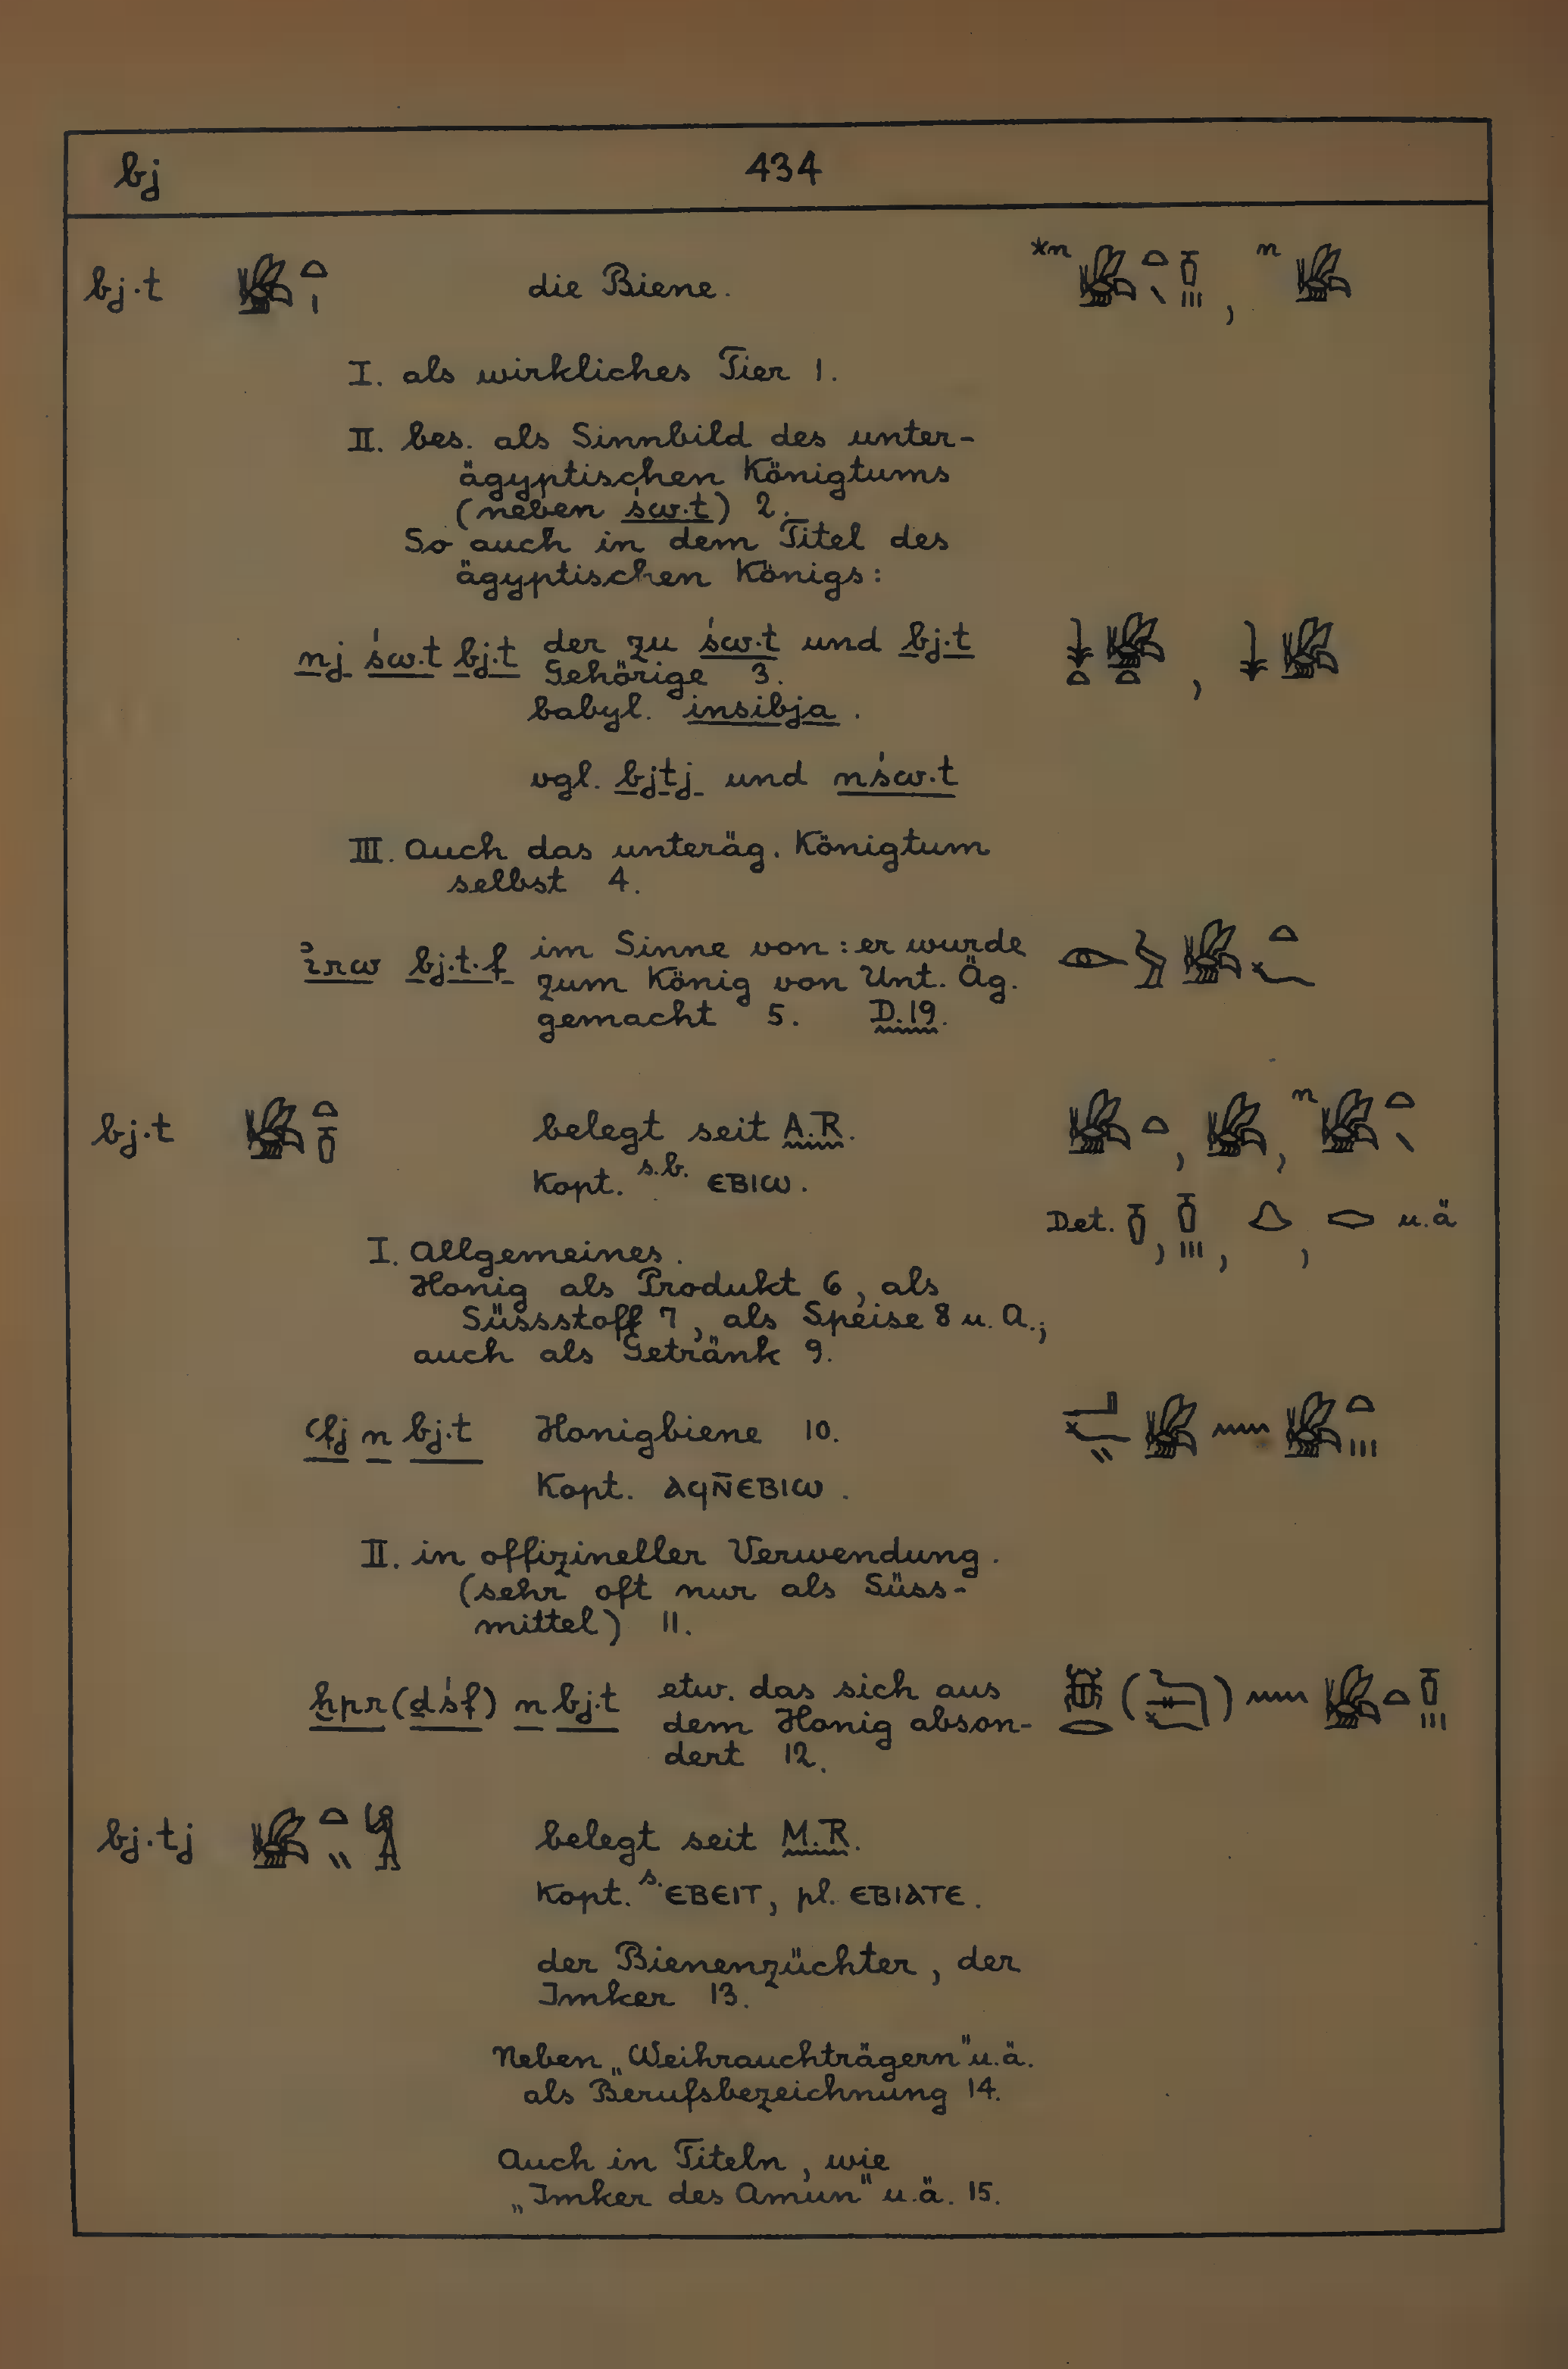 bj 434
bj·t 𓆤𓏏𓏤 die Biene.
I. als wirkliches Tier 1.
II. bes. als Sinnbild des unter-
ägyptischen Königtums
(neben św·t) 2.
So auch in dem Titel des
ägyptischen Königs:
nj św·t bj·t der zu św·t und bj·t 𓇓𓏏𓆤𓏏, 𓇓𓆤
Gehörige 3.
babyl. insibja.
vgl. bjtj und nśw·t
III. Auch das unteräg. Königtum
selbst 4.
i͗rw bj·t·f im Sinne von: er wurde
zum König von Unt. Äg.
gemacht 5. D.19.
bj·t belegt seit A.R.
Kopt. s.b. ⲉⲃⲓⲱ.
Det. u.ä
I. Allgemeines.
Honig als Produkt 6, als
Süssstoff 7, als Speise 8 u. A.;
auch als Getränk 9.
ꜥfj n bj·t Honigbiene 10.
Kopt. ⲁϥⲛ̄ⲉⲃⲓⲱ.
II. in offizineller Verwendung.
(sehr oft nur als Süss-
mittel) 11.
ḫpr (ḏśf) n bj·t etw. das sich aus
dem Honig abson-
dert 12.
bj·tj belegt seit M.R.
Kopt. s. ⲉⲃⲉⲓⲧ, pl. ⲉⲃⲓⲁⲧⲉ.
der Bienenzüchter, der
Imker 13.
Neben „Weihrauchträgern" u.ä.
als Berufsbezeichnung 14.
Auch in Titeln, wie
„Imker des Amun" u.ä. 15.